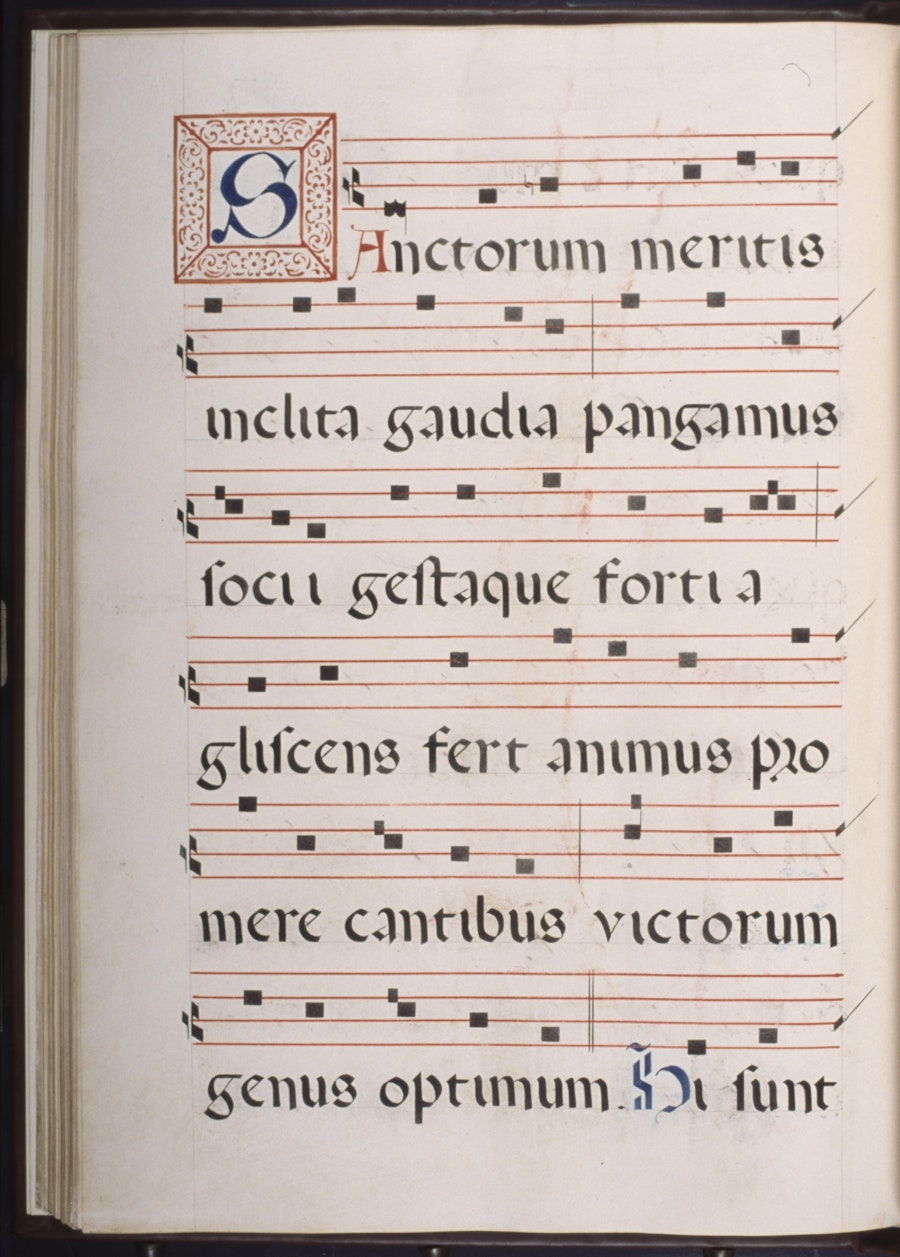 SAnctorum meritis
inclita gaudia pangamus
ſocii geſtaque fortia
gliſcens fert animus pro
mere cantibus victorum
genus optimum. Hi ſunt